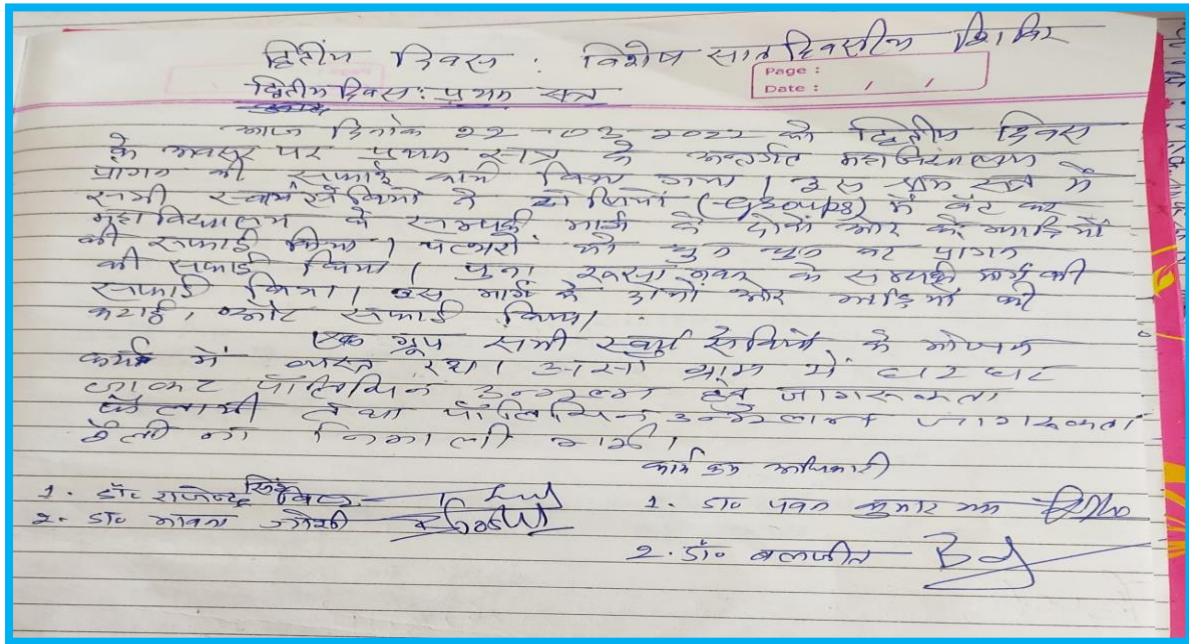 द्वितीय दिवस : विशेष सात दिवसीय शिविर
Page :
Date : / /
द्वितीय दिवस : प्रथम सत्र
आज दिनांक 22-03-2022 को द्वितीय दिवस
के अवसर पर प्रथम सत्र के अन्तर्गत महाविद्यालय
प्रांगन की सफाई कार्य किया गया। इस सत्र में
सभी स्वयं सेवियों ने टोलियों (Groups) में बंट कर
महाविद्यालय के सम्पर्क मार्ग के दोनों ओर के झाडियों
की सफाई किया। पत्थरों को चुन चुन कर प्रांगन
की सफाई किया। पुनः के सम्पर्क मार्ग की
सफाई किया। इस मार्ग के दोनों ओर झाडियों की
कटाई, और सफाई किया।
एक ग्रूप सभी स्वयं सेवियों के भोजन
कार्य में व्यस्त रहा। ग्राम में घर घर
जाकर पॉलिथिन उन्मूलन हेतु जागरूकता
फैलायी तथा पॉलिथिन उन्मूलन जागरूकता
रैली निकाली गयी।
कार्यक्रम अधिकारी
1. डॉ० राजेन्द्र सिंह
1. डॉ० पवन कुमार
2. डॉ० भावना जोशी
2. डॉ० बलजीत